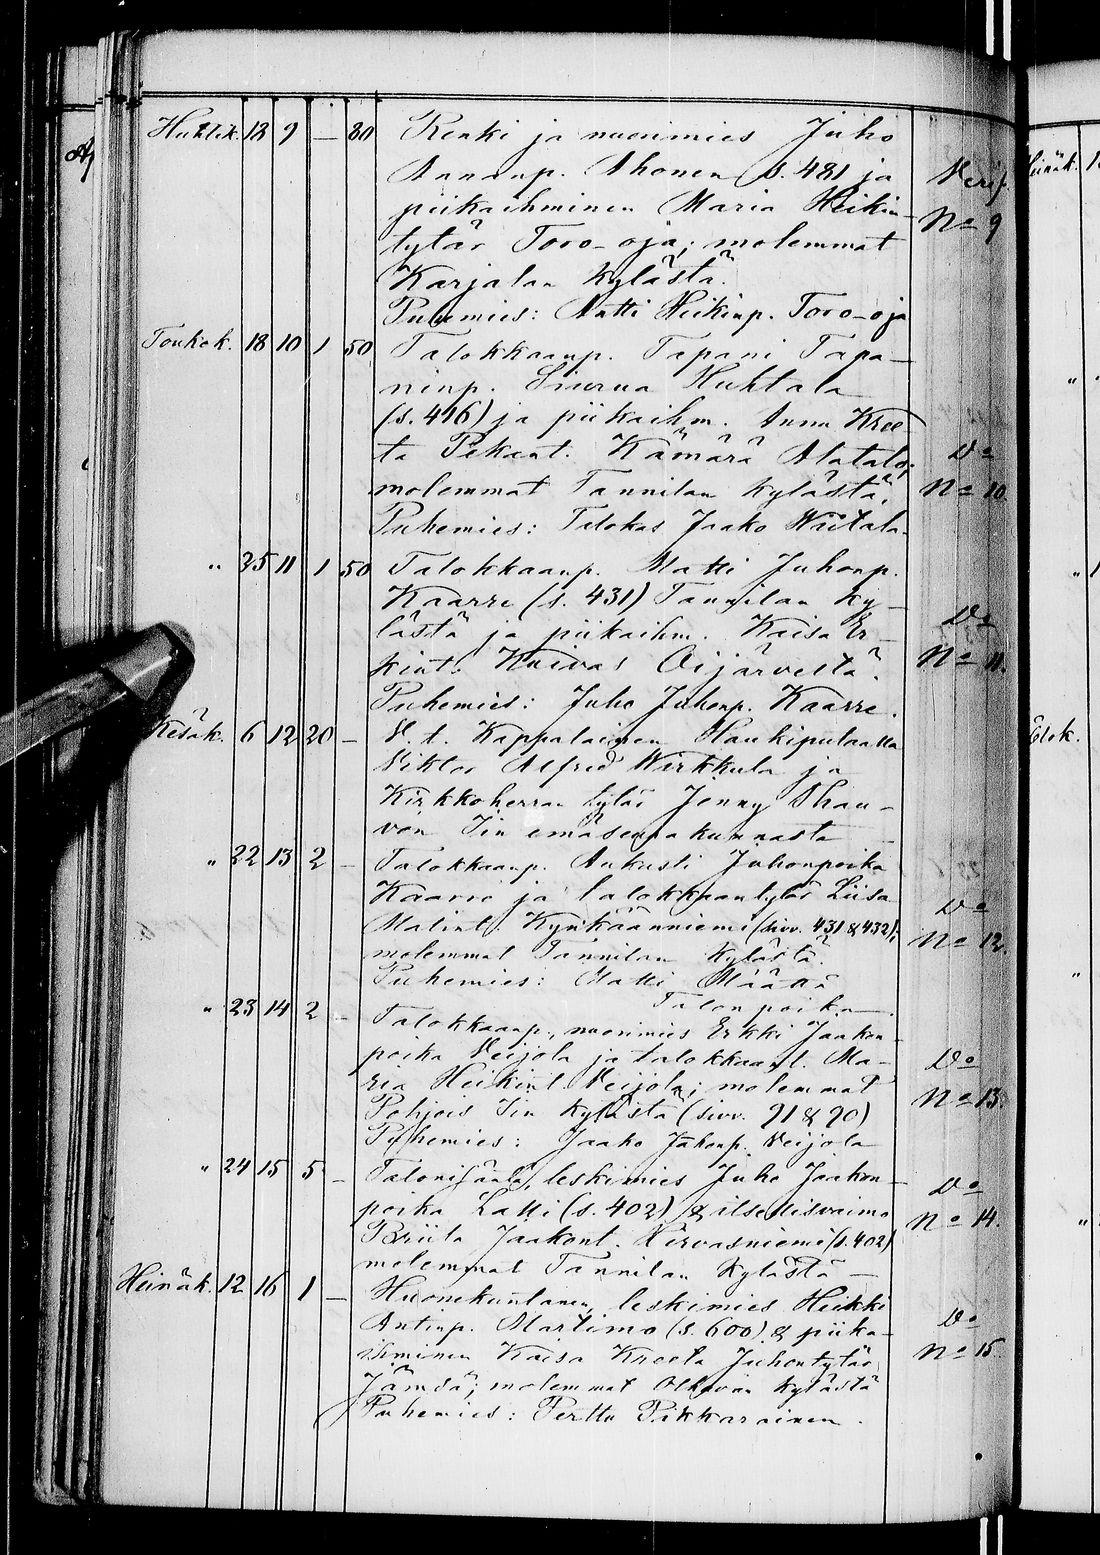 Huhtik. 18 9 — 80 Renki ja nuorimies Juho
Aaronp. Ahonen (s. 481 ja
Verif.
piikaihminen Maria Heikin-
No 9
tytär Toro-oja; molemmat
Karjalan kylästä.
Puhemies: Antti Heikinp. Toro-oja
Toukok. 18 10 1 50 Talokkaanp. Tapani Tapa-
ninp. Siurua Huhtala
(s. 416) ja piikaihm. Anna Kree
ta Pekant. Kämärä Alatalo;
Do
molemmat Tannilan kylästä.
No 10.
Puhemies: Talokas Jaako Wiitala.
" 25 11 1 50 Talokkaanp. Matti Juhonp.
Kaarre (s. 431) Tannilan ky-
Do
lästä ja piikaihm. Kaisa Er-
kint. Kuivas Oijärveltä.
No 11.
Puhemies: Juho Juhonp. Kaarre.
Kesäk. 6 12 20 — V. t. Kappalainen Haukiputaalla
Viktor Alfred Wirkkula ja
Kirkkoherran tytär Jenny
von Iin emäseurakunnasta —
" 22 13 2 — Talokkaanp. Aukusti Juhonpoika
Kaarre ja talokkaantytär Liisa
Do
Matint. Kynkäänniemi (sivv. 431 & 432);
No 12.
molemmat Tannilan kylästä.
Puhemies: Matti Määttä
Talonpoika —
" 23 14 2 — Talokkaanp., nuorimies Erkki Jaakon-
poika Veijola ja talokkaant. Ma-
Do
ria Heikint. Veijola; molemmat
No 13.
Pohjois Iin kylästä (sivv. 91 & 90)
Puhemies: Jaako Juhonp. Veijola
" 24 15 5 — Talonisäntä, leskimies Juho Jaakon-
Do
poika Latti (s. 402) & itsellisvaimo
No 14.
Briita Jaakont. Kirvasniemi (s. 402)
molemmat Tannilan kylästä —
Heinäk. 12 16 1 — Huonekuntanen, leskimies Heikki
Antinp. Martimo (s. 600) & piika-
Do
ihminen Kaisa Kreeta Juhontytär
No 15.
Jämsä; molemmat Olhavan kylästä
Puhemies: Perttu Pikkarainen.
Heinäk.
Elok.